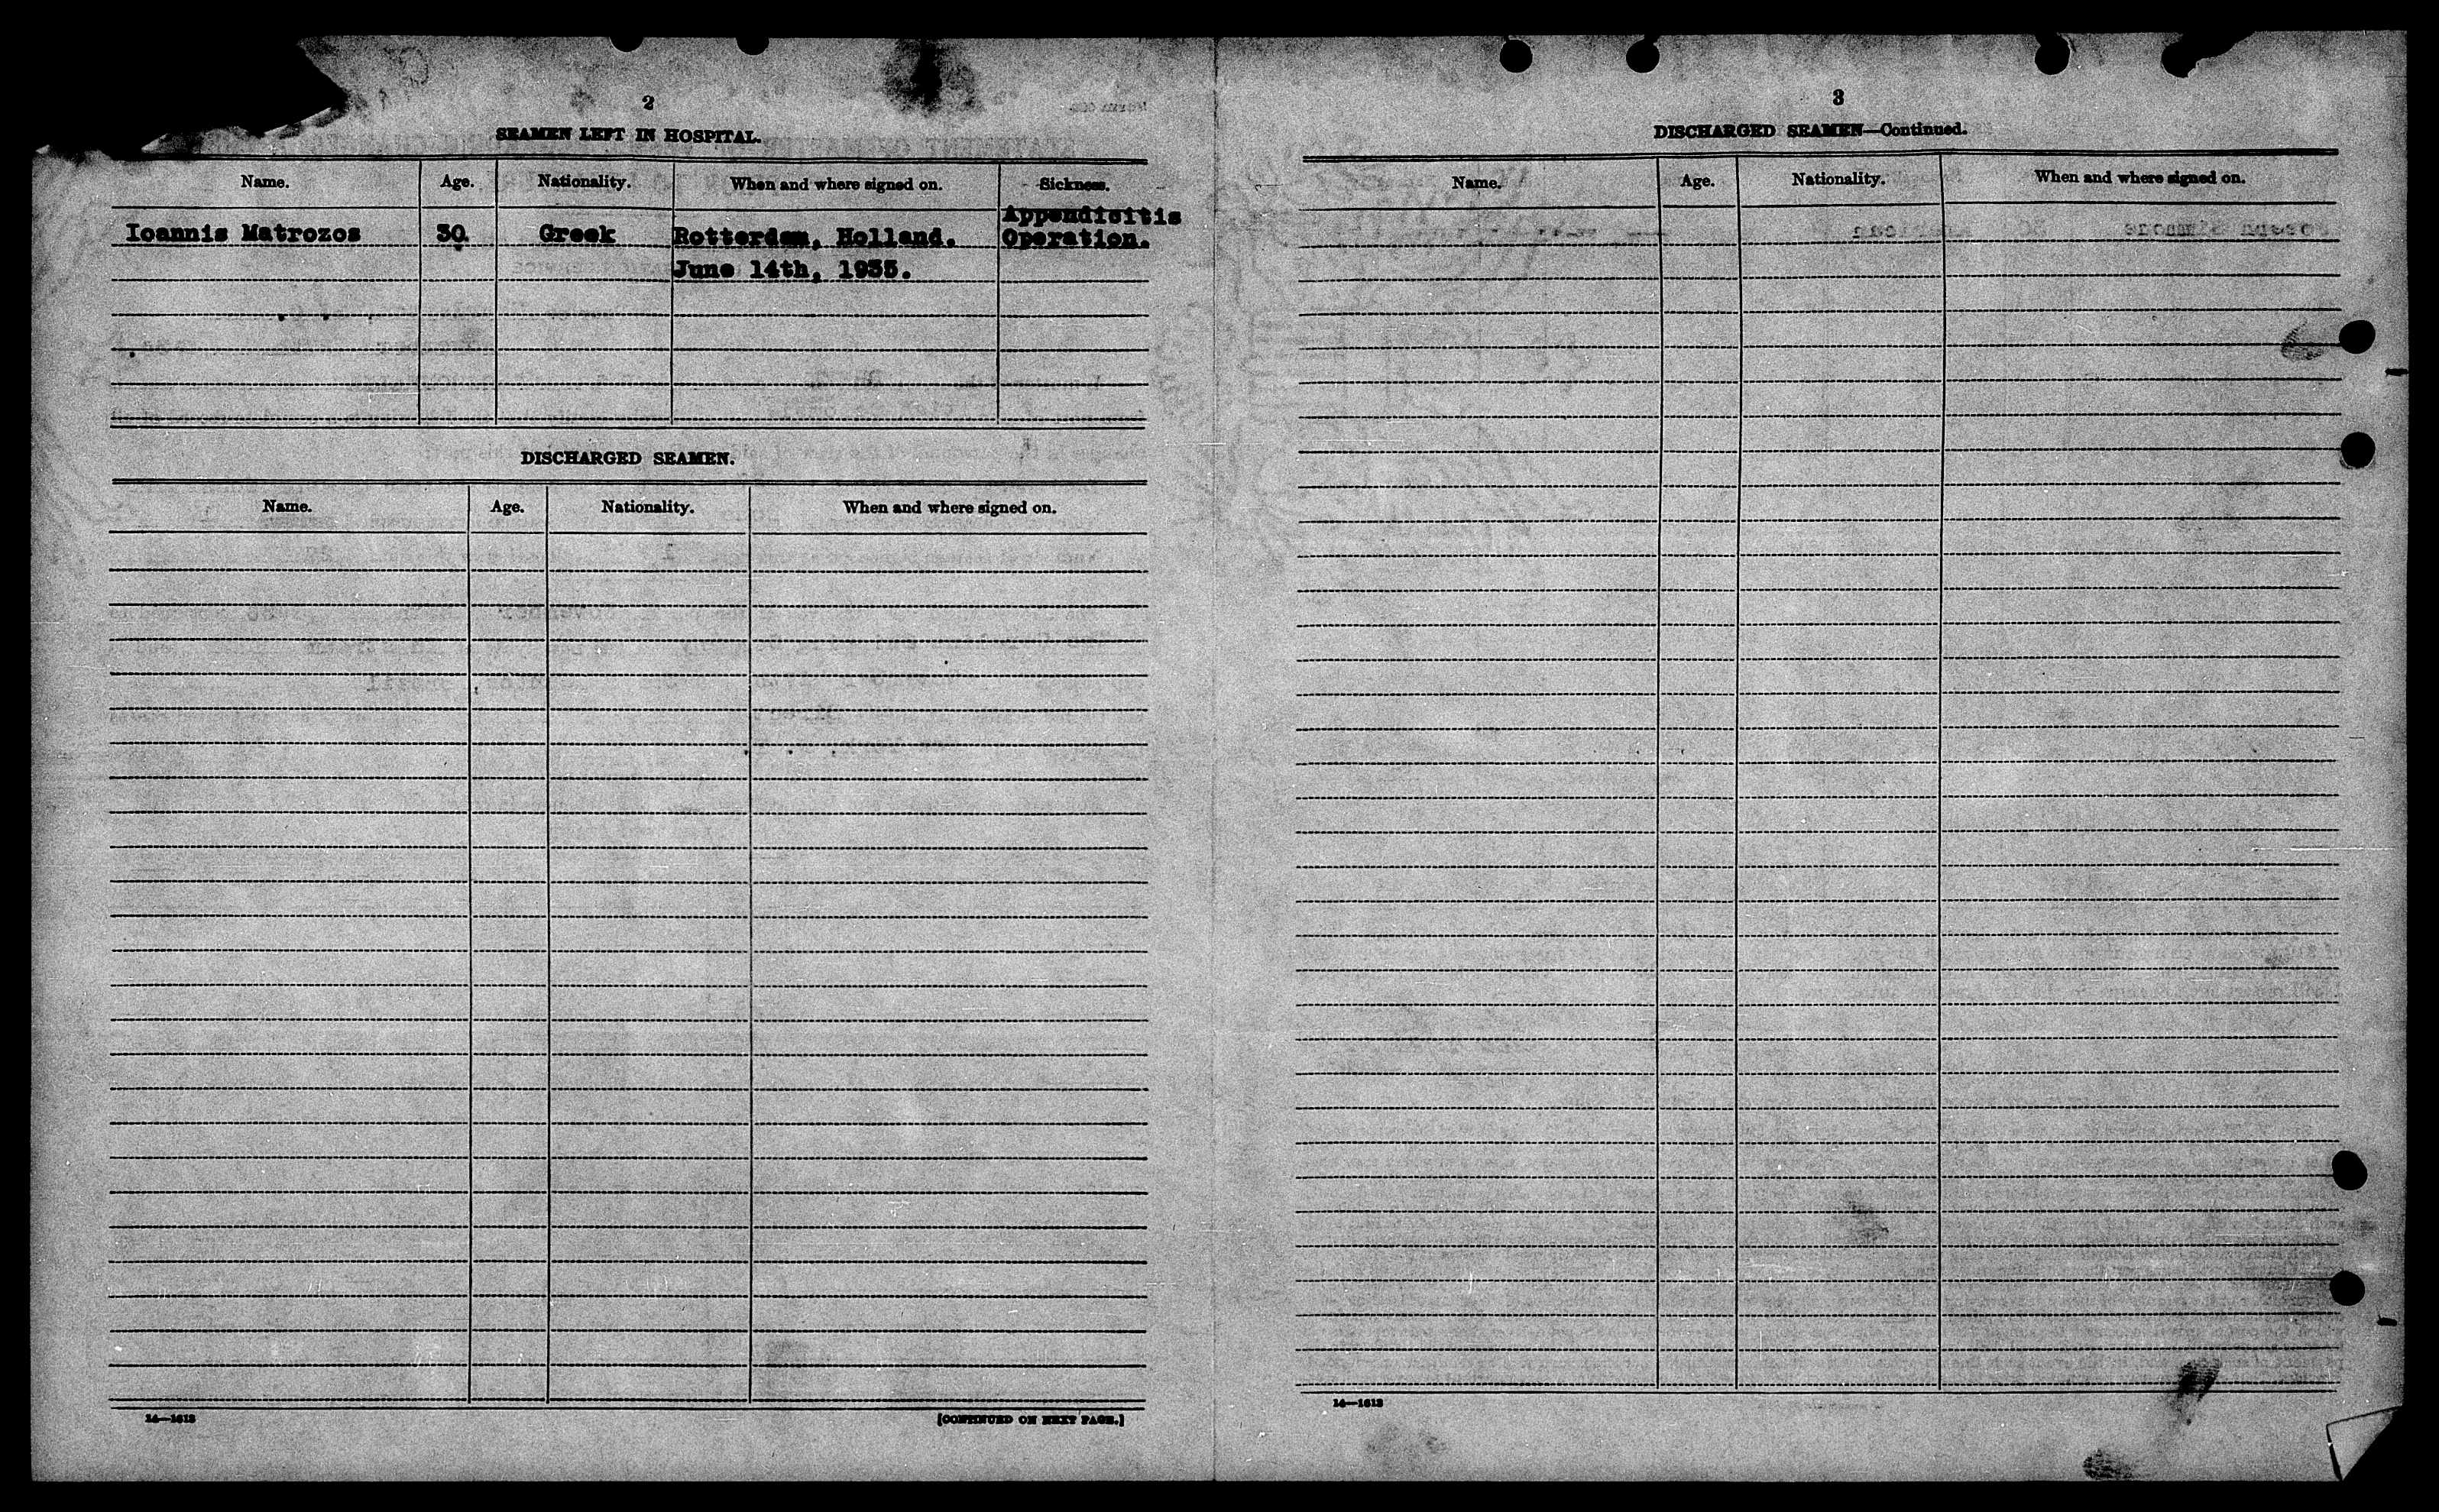 2
SEAMEN LEFT IN HOSPITAL.
Name. Age. Nationality. When and where signed on. Sickness.
Appendicitis
Ioannis Matrozos 30. Greek Rotterdam, Holland. Operation.
June 14th, 1935.
DISCHARGED SEAMEN.
Name. Age. Nationality. When and where signed on.
14—1613
[CONTINUED ON NEXT PAGE.]
3
DISCHARGED SEAMEN—Continued.
Name. Age. Nationality. When and where signed on.
14—1613